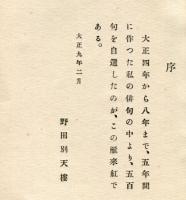 序
大正四年から八年まで、五年間
に作つた私の俳句の中より、五百
句を自選したのが、この雁来紅で
ある。
大正九年二月
野田別天樓